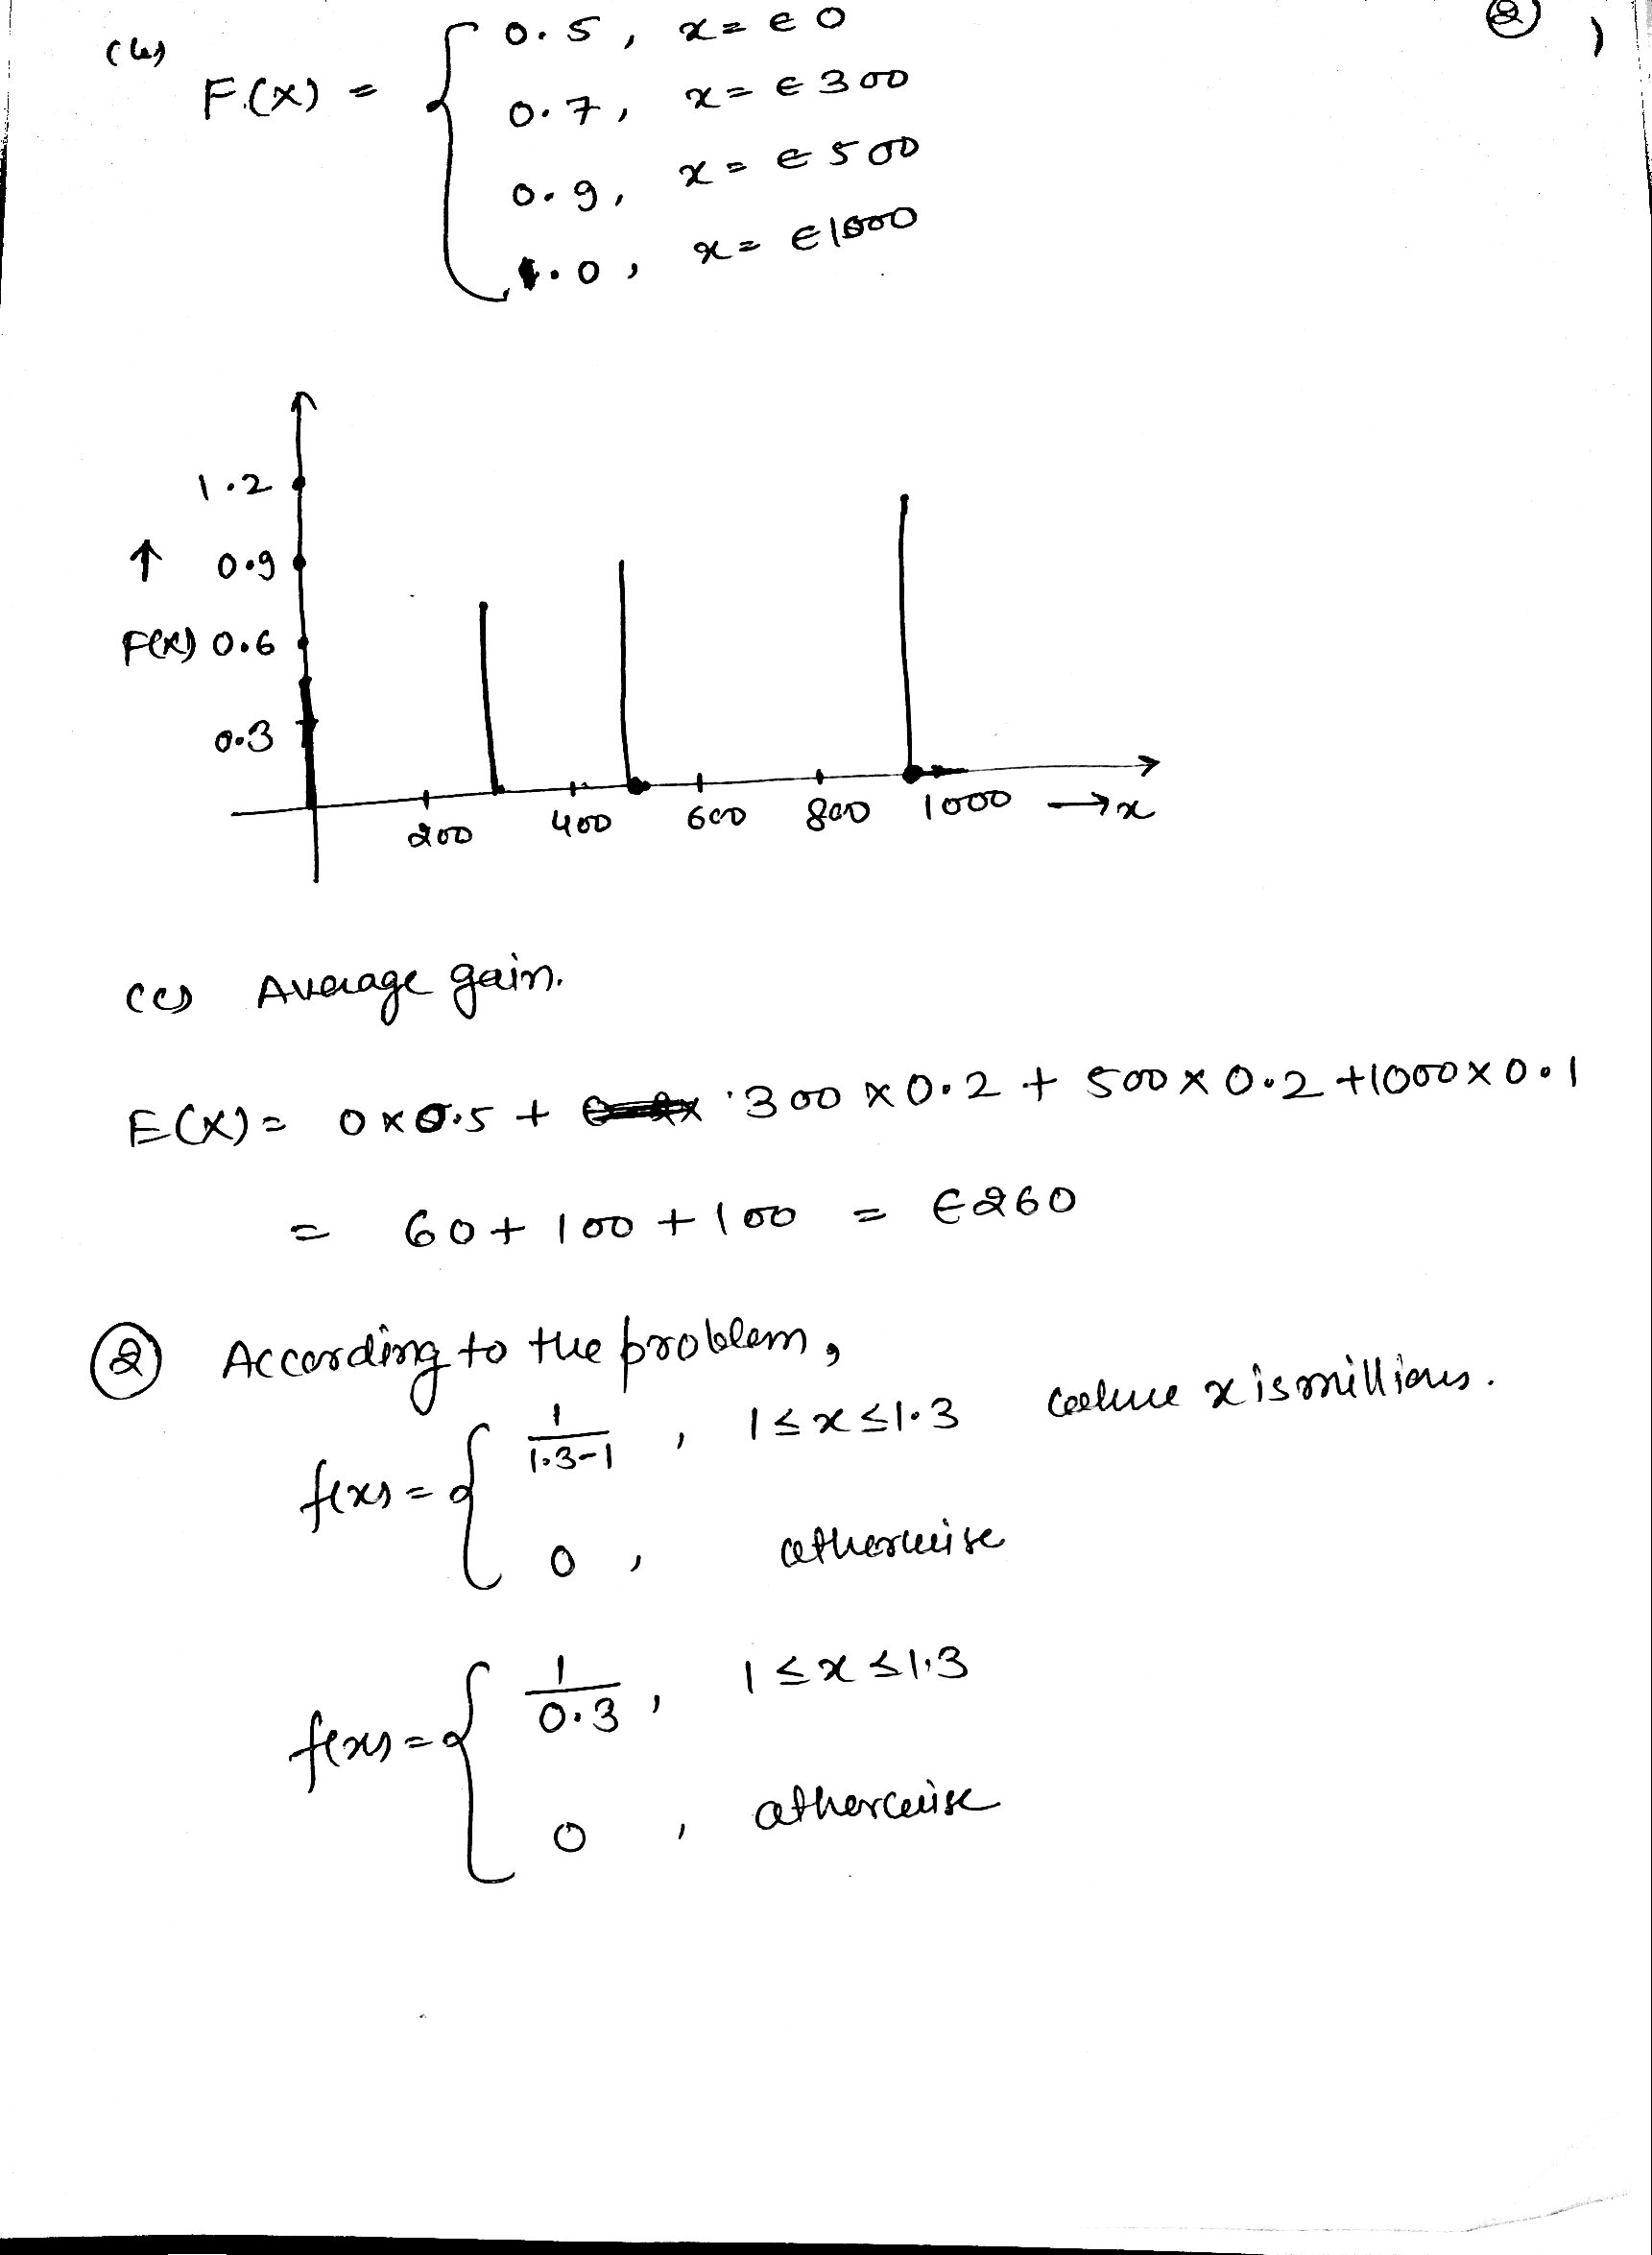 (b) F(X) = { 0.5, x = € 0
0.7, x = € 300
0.9, x = € 500
1.0, x = € 1000
②
1.2
↑ 0.9
F(x) 0.6
0.3
200 400 600 800 1000 → x
(c) Average gain.
E(X) = 0 x 0.5 + 300 x 0.2 + 500 x 0.2 + 1000 x 0.1
= 60 + 100 + 100 = €260
② According to the problem,
f(x) = { 1/(1.3-1) , 1 ≤ x ≤ 1.3 where x is millions.
0 , otherwise
f(x) = { 1/0.3 , 1 ≤ x ≤ 1.3
0 , otherwise